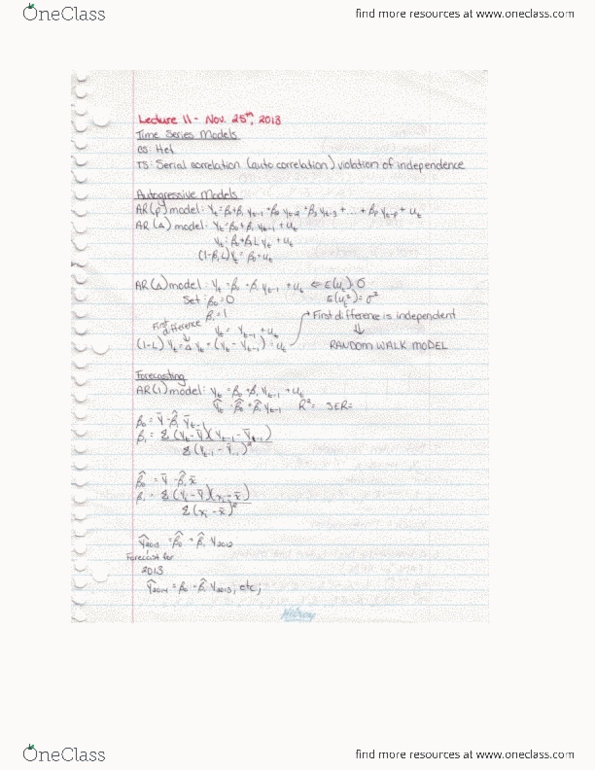 OneClass
find more resources at www.oneclass.com
Lecture 11 - Nov. 25th, 2013
Time Series Models
CS: Het
TS: Serial correlation (auto correlation) violation of independence
Autogressive Models
AR(p) model: Yt = β + β1 Yt-1 + β2 Yt-2 + β3 Yt-3 + ... + βp Yt-p + ut
AR(1) model: Yt = β0 + β1 Yt-1 + ut
Yt = β0 + β1 L Yt + ut
(1-β1L)Yt = β0 + ut
AR(1) model: Yt = β0 + β1 Yt-1 + ut ⇐ E(ut) = 0
Set: β0 = 0 E(ut²) = σ²
β1 = 1 → First difference is independent
First difference Yt = Yt-1 + ut ⇓
(1-L) Yt = Δ Yt = (Yt - Yt-1) = ut RANDOM WALK MODEL
Forecasting
AR(1) model: Yt = β0 + β1 Yt-1 + ut
Ŷt = β̂0 + β̂1 Yt-1 R² = SER =
β0 = Ȳ - β̂1 Ȳt-1
β1 = Σ(Yt - Ȳ)(Yt-1 - Ȳt-1)
Σ(Yt-1 - Ȳt-1)²
β̂0 = Ȳ - β̂1 x̄
β1 = Σ(Yi - Ȳ)(xi - x̄)
Σ(xi - x̄)²
Ŷ2013 = β̂0 + β̂1 Y2012
Forecast for
2013
Ŷ2014 = β0 - β̂1 Y2013, etc,
Hilroy
OneClass
find more resources at www.oneclass.com